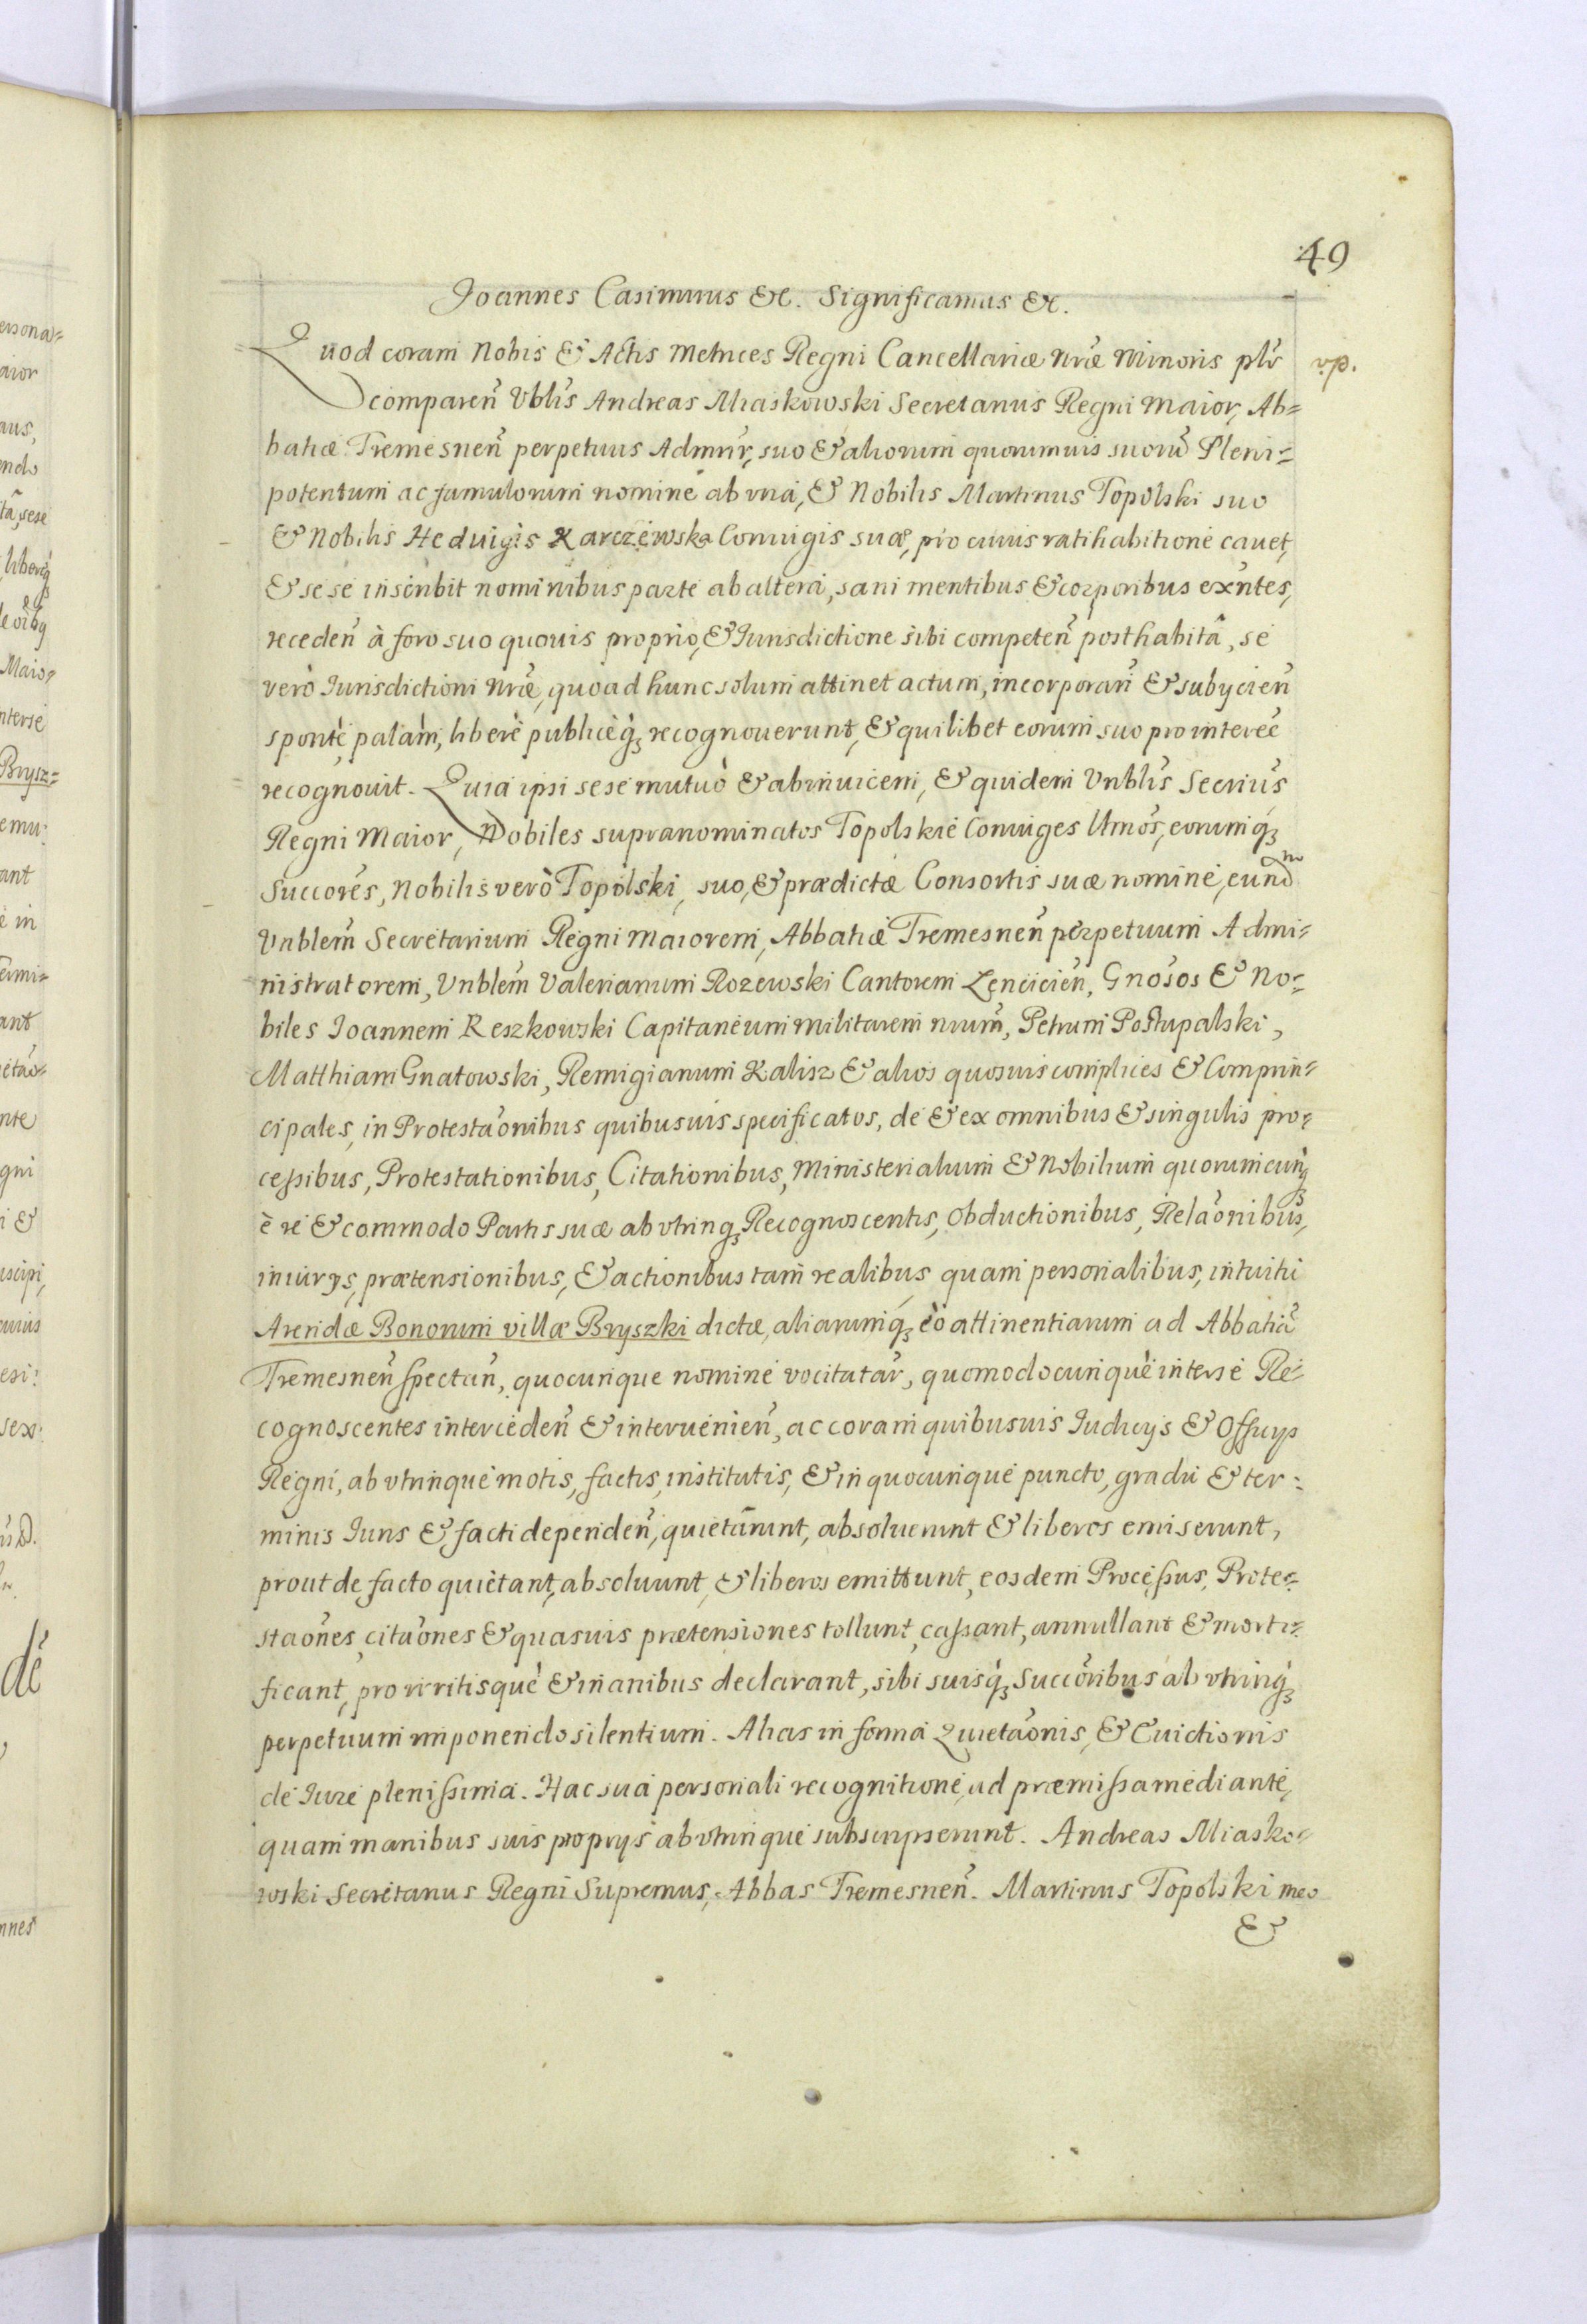 49
Joannes Casimirus &c. Significamus &c.
Quod coram Nobis & Actis Metrices Regni Cancellariæ nræ Minoris plr
comparen Vblis Andreas Miaskowski Secretarius Regni Maior, Ab=
batiæ Tremesnen perpetuus Admnr, suo & aliorum quorumuis suorũ Pleni=
potentum ac famulorum nomine ab vna, & Nobilis Martinus Topolski suo
& Nobilis Heduigis Karczewska Coniugis suæ, pro cuius ratihabitione cauet,
& sese inscribit nominibus parte ab altera, sani mentibus & corporibus exntes,
receden à foro suo quouis proprio, & Iurisdictione sibi competen posthabitâ, se
verò Iurisdictioni nræ, quoad hunc solum attinet actum, incorporan & subycien
spontè, palàm, liberè publicèq; recognouerunt, & quilibet eorum suo pro interee
recognouit. Quia ipsi sese mutuò & abinuicem, & quidem Vnblis Secrius
Regni Maior, Nobiles supranominatos Topolskie Coniuges Utmos, eorumq;
Succores, Nobilis verò Topolski, suo, & prædictæ Consortis suæ nomine, eundm
Vnblem Secretarium Regni Maiorem, Abbatiæ Tremesnen perpetuum Admi=
nistratorem, Vnblem Valerianum Rozewski Cantorem Lencicien, Gnosos & No=
biles Joannem Reszkowski Capitaneum militarem nrum, Petrum Postupalski,
Matthiam Gnatowski, Remigianum Kalisz & alios quosuis complices & Comprin=
cipales, in Protestaonibus quibusuis specificatos, de & ex omnibus & singulis pro=
cessibus, Protestationibus, Citationibus, Ministerialium & Nobilium quorumcunq;
è re & commodo Partis suæ ab vtrinq; Recognoscentis, Obductionibus, Relaonibus,
iniurys, prætensionibus, & actionibus tam realibus, quam personalibus, intuitu
Arendæ Bonorum villæ Bryszki dictæ, aliarumq; eò attinentiarum ad Abbatiã
Tremesnen spectan, quocunque nomine vocitatar, quomodocunquè inter se Re=
cognoscentes interceden & interuenien, ac coram quibusuis Iudicys & Officys
Regni, ab vtrinque motis, factis, institutis, & in quocunque puncto, gradu & ter=
minis Iuris & facti dependen, quietãrunt, absoluerunt & liberos emiserunt,
prout de facto quietant, absoluunt, & liberos emittunt, eosdem Processus, Prote=
staones, citaones & quasuis prætensiones tollunt, cassant, annullant & morti=
ficant, pro irritisquè & inanibus declarant, sibi suisq; Succoribus ab vtrinq;
perpetuum imponendo silentium. Alias in forma Quietaonis, & Euictionis
de Iure plenissima. Hac sua personali recognitione, ad præmissa mediante,
quam manibus suis proprys ab vtrinque subscripserunt. Andreas Miasko=
wski Secretarius Regni Supremus, Abbas Tremesnen. Martinus Topolski meo
&